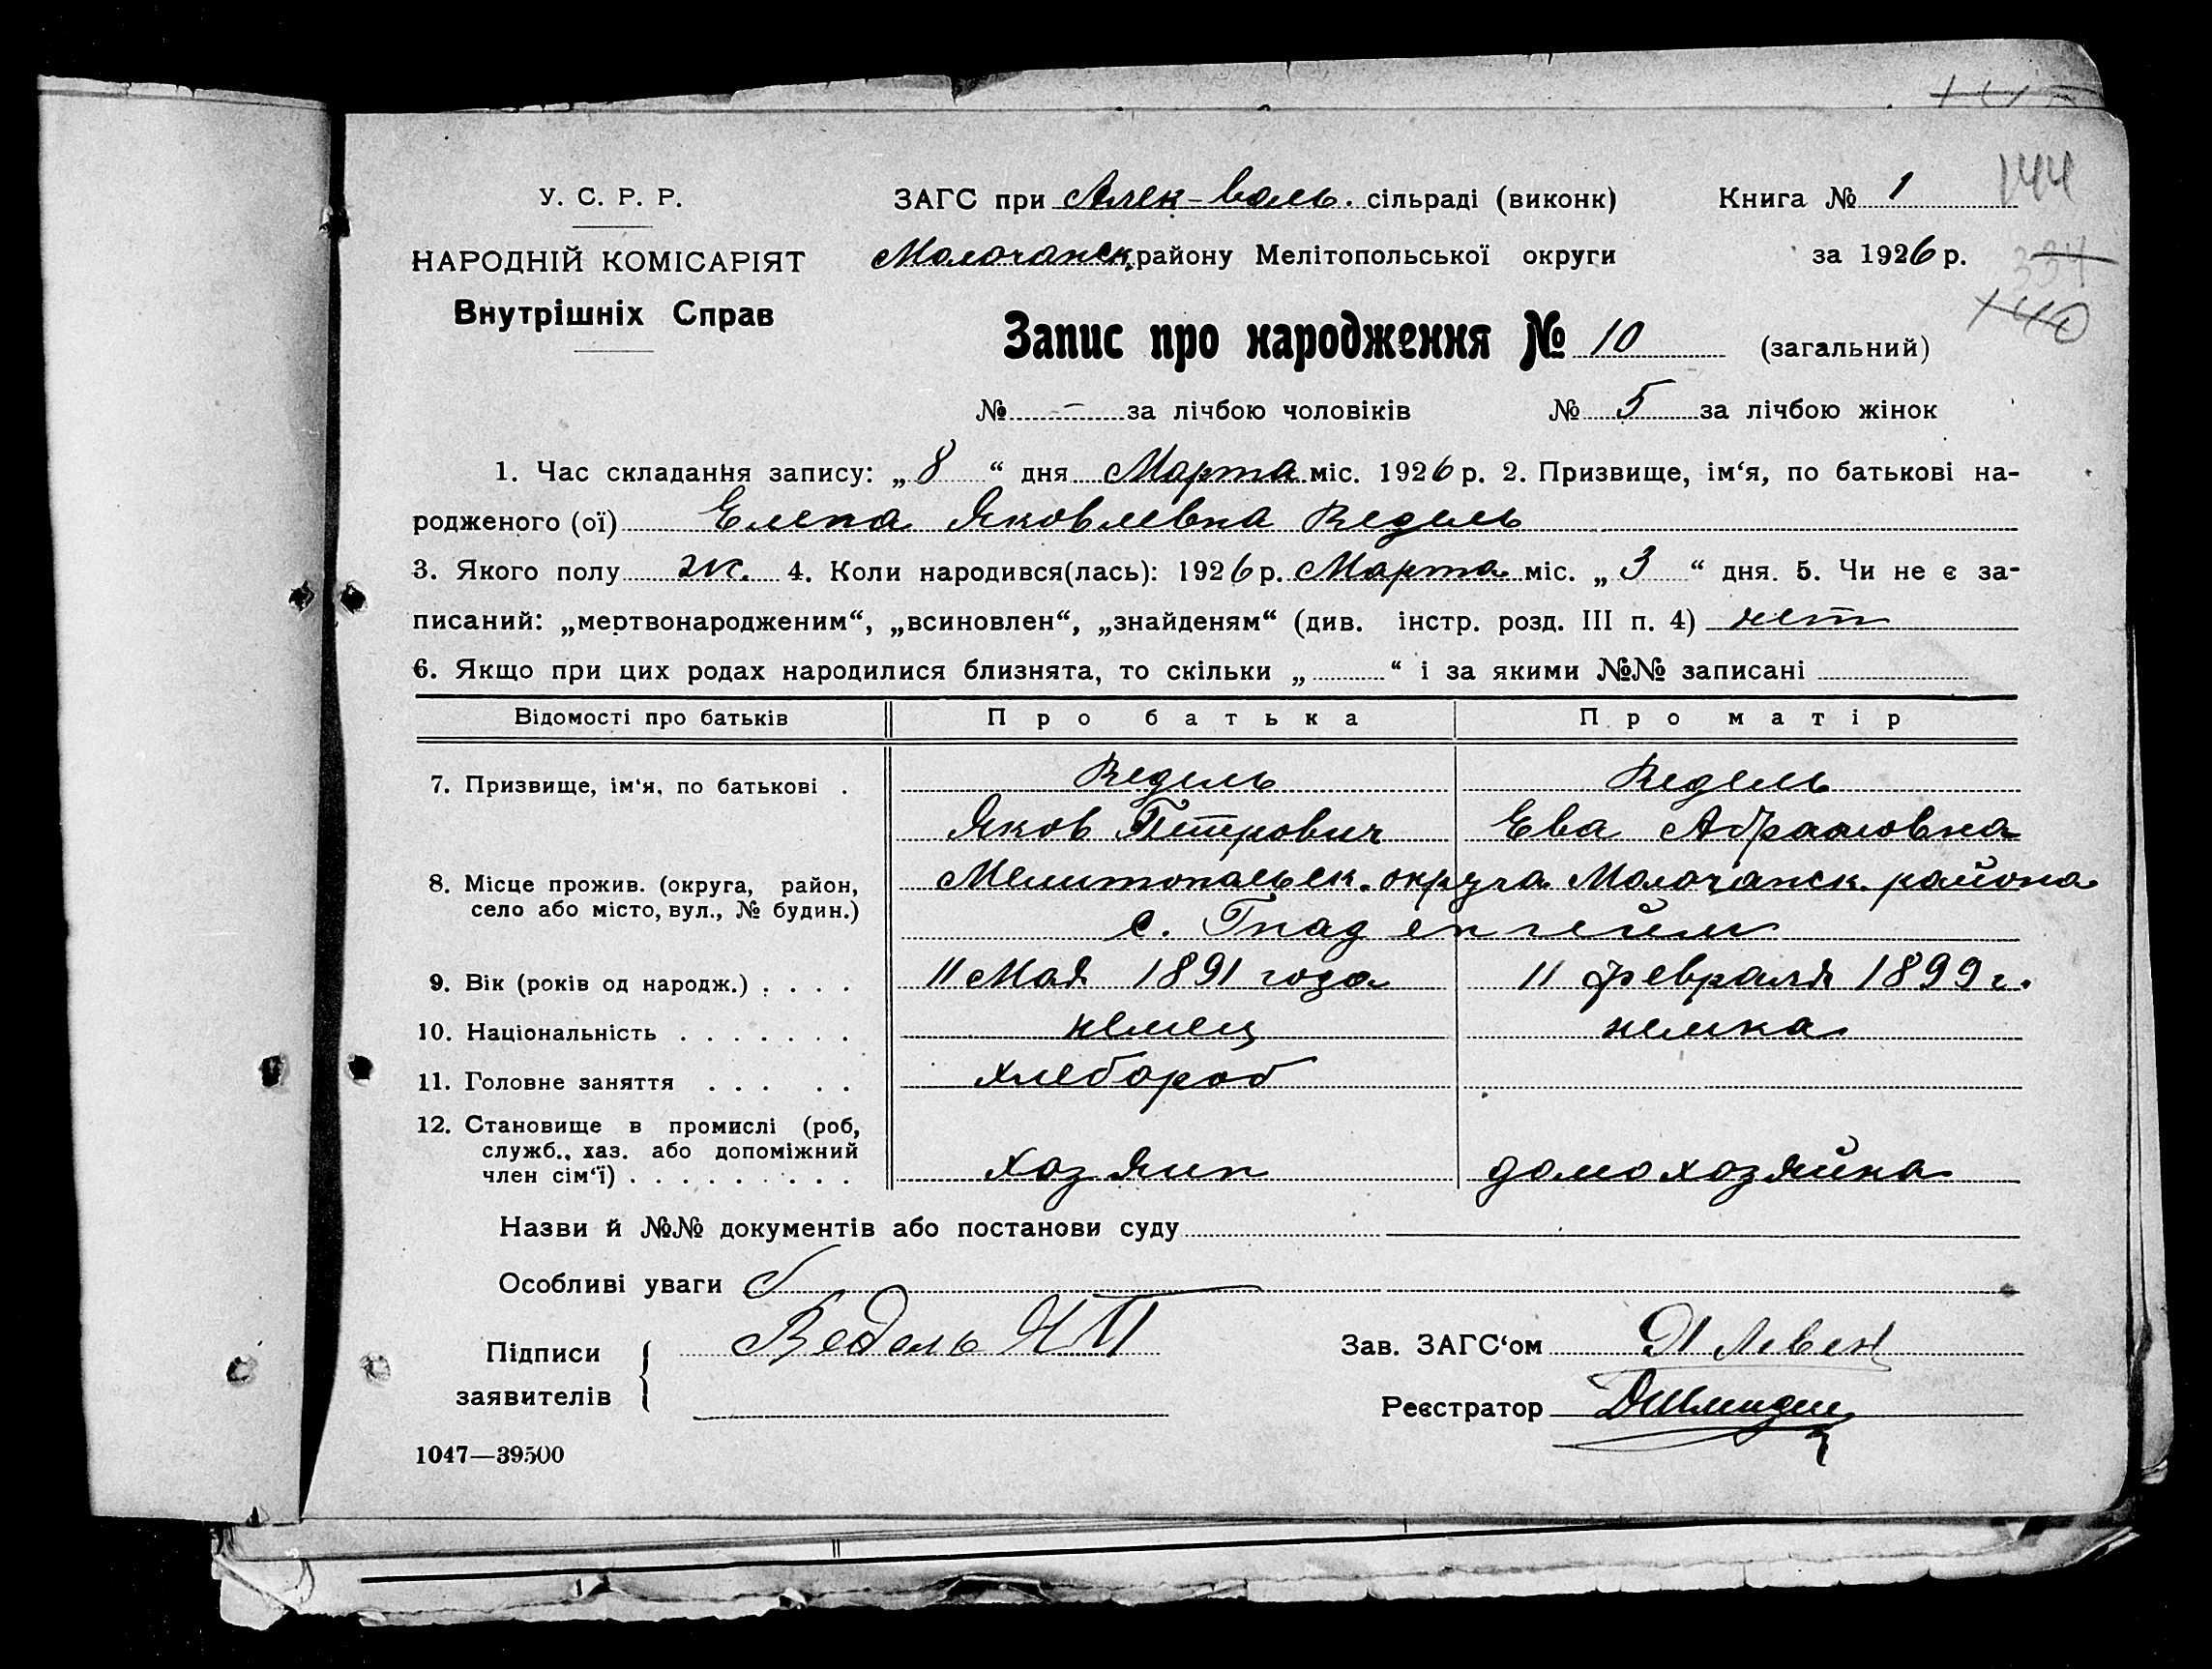 144
У. С. Р. Р.
ЗАГС при Алек-Валь. сільраді (виконк)
Книга № 1
НАРОДНІЙ КОМІСАРІЯТ
Молочанск. району Мелітопольської округи
за 1926 р.
334
140
Внутрішніх Справ
Запис про народження № 10 (загальний)
№ – за лічбою чоловіків № 5 за лічбою жінок
1. Час складання запису: „8“ дня Марта міс. 1926 р. 2. Призвище, ім‘я, по батькові на-
родженого (ої) Елена Яковлевна Ведель
3. Якого полу ж. 4. Коли народився(лась): 1926 р. Марта міс. „3“ дня. 5. Чи не є за-
писаний: „мертвонародженим“, „всиновлен“, „знайденям“ (див. інстр. розд. III п. 4) нет
6. Якщо при цих родах народилися близнята, то скільки „ “ і за якими №№ записані
Відомості про батьків Про батька Про матір
7. Призвище, ім‘я, по батькові . Ведель Ведель
Яков Петрович Ева Абрамовна
8. Місце прожив. (округа, район, Мелитопольск. округа Молочанск. района
село або місто, вул., № будин.) с. Гнаденгейм
9. Вік (років од народж.) . . . . 11 Мая 1891 года 11 февраля 1899 г.
10. Національність . . . . . . . немец немка
11. Головне заняття . . . . . хлебороб
12. Становище в промислі (роб,
служб., хаз. або допоміжний
член сім‘ї) . . . . . . . . . хозяин домохозяйка
Назви й №№ документів або постанови суду
Особливі уваги
Підписи Ведель Я П
заявителів
Зав. ЗАГС‘ом Левен
Реєстратор
1047—39500